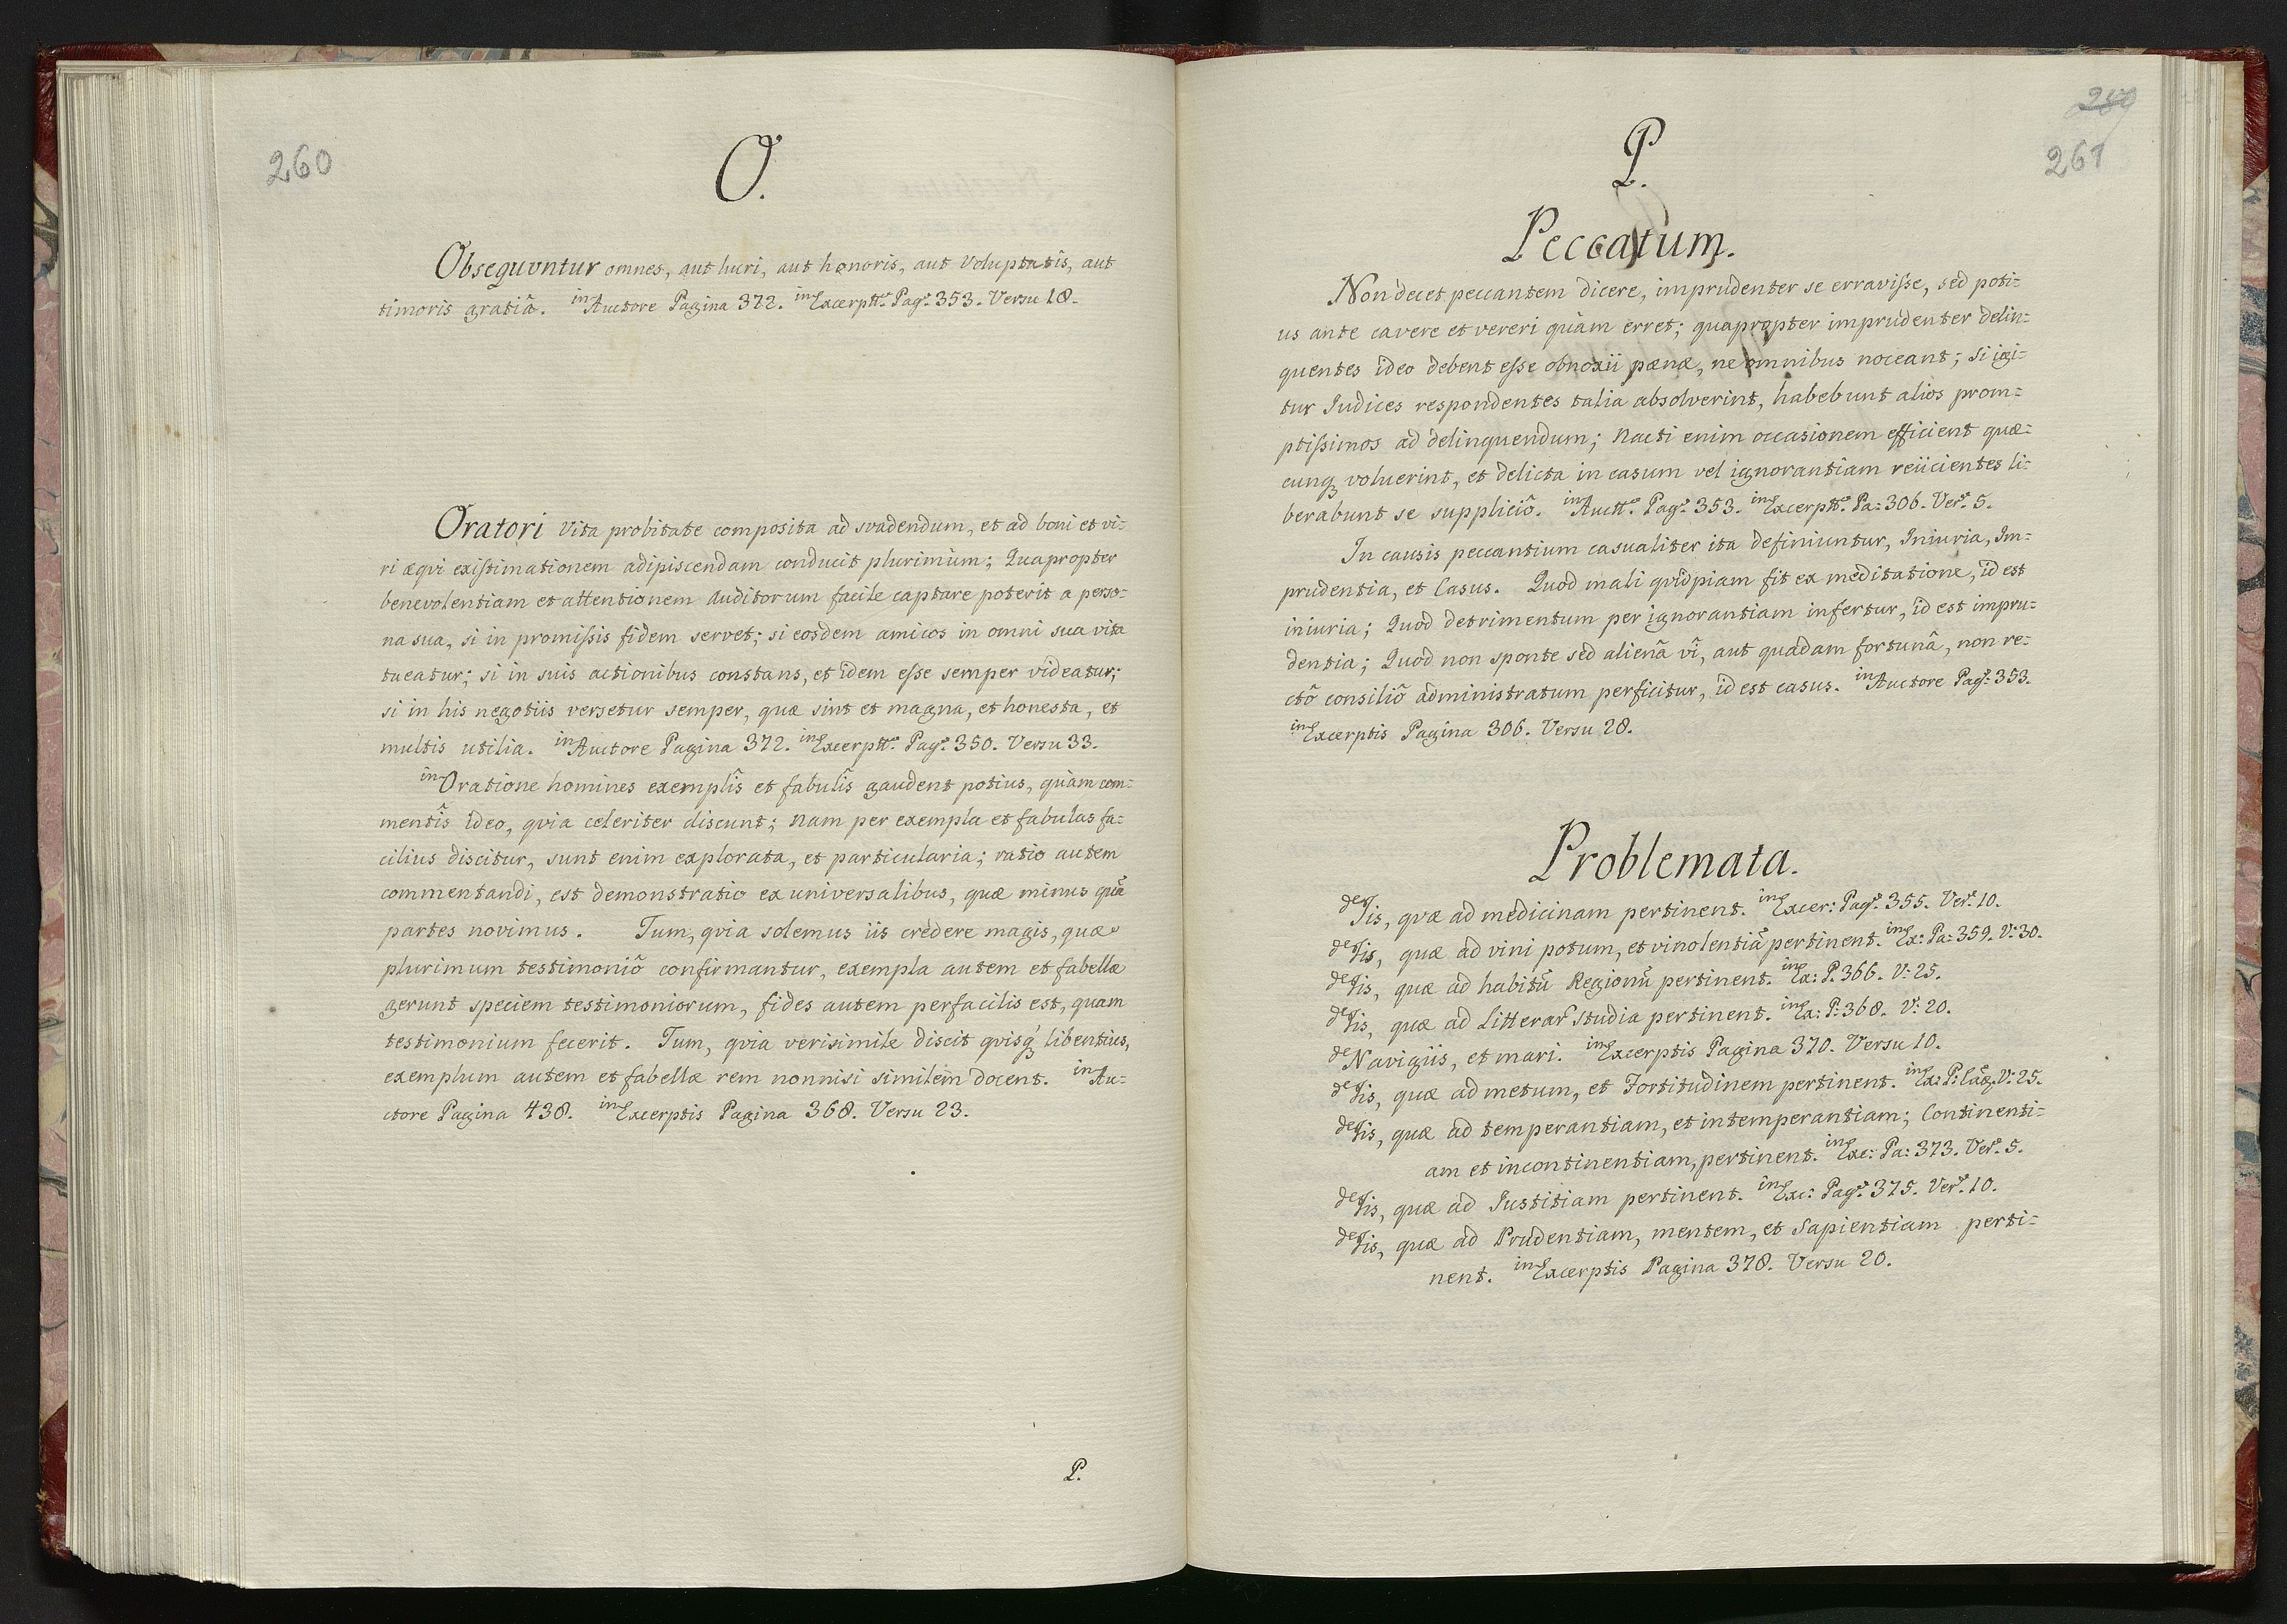 260
O.
Obsequuntur omnes, aut lucri, aut honoris, aut Voluptatis, aut
timoris gratiâ. in Auctore Pagina 372. in Excerptis. Pag: 353. Versu 18.
Oratori Vita probitate composita ad svadendum, et ad boni et vi-
ri æqvi existimationem adipiscendam conducit plurimùm; Quapropter
benevolentiam et attentionem Auditorum facile captare poterit a perso-
na sua, si in promissis fidem servet; si eosdem amicos in omni sua vita
tueatur; si in suis actionibus constans, et idem esse semper videatur;
si in his negotiis versetur semper, quæ sint et magna, et honesta, et
multis utilia. in Auctore Pagina 372. in Excerptis. Pag: 350. Versu 33.
in Oratione homines exemplîs et fabulîs gaudent potius, quàm com-
mentîs ideo, qvia celeriter discunt; Nam per exempla et fabulas fa-
cilius discitur, sunt enim explorata, et particularia; ratio autem
commentandi, est demonstratio ex universalibus, quæ minus quã
partes novimus. Tum, qvia solemus iis credere magis, quæ
plurimum testimoniô confirmantur, exempla autem et fabellæ
gerunt speciem testimoniorum, fides autem perfacilis est, quam
testimonium fecerit. Tum, qvia verisimile discit qvisq; libentius,
exemplum autem et fabellæ rem nonnisi similem docent. in Au-
ctore Pagina 438. in Excerptis Pagina 368. Versu 23.
P.
261
P.
Peccatum.
Non decet peccantem dicere, imprudenter se erravisse, sed poti-
us ante cavere et vereri quàm erret; quapropter imprudenter delin-
quentes ideo debent esse obnoxii pænæ, ne omnibus noceant; si igi-
tur Iudices respondentes talia absolverint, habebunt alios prom-
ptissimos ad delinquendum; Nacti enim occasionem efficient quæ-
cunq; voluerint, et delicta in casum vel ignorantiam reiicientes li-
berabunt se suppliciô. in Auctr. Pag: 353. in Excerptis. Pa: 306. Ver: 5.
In causis peccantium casualiter ita definiuntur, Iniuria, Im-
prudentia, et Casus. Quod mali qvidpiam fit ex meditatione, id est
iniuria; Quod detrimentum per ignorantiam infertur, id est impru-
dentia; Quod non sponte sed alienâ vî, aut quadam fortunâ, non re-
ctô consiliô administratum perficitur, id est casus. in Auctore Pag: 353.
in Excerptis Pagina 306. Versu 28.
Problemata.
de Iis, qvæ ad medicinam pertinent. in Excer: Pag: 355. Ver: 10.
de Iis, quæ ad vini potum, et vinolentiã pertinent. in Ex: Pa: 359. V: 30.
de Iis, quæ ad habitũ Regionũ pertinent. in Ex: P. 366. V: 25.
de Iis, quæ ad Litterar̃ Studia pertinent. in Ex: P: 368. V: 20.
de Navigiis, et mari. in Excerptis Pagina 370. Versu 10.
de Iis, quæ ad metum, et Fortitudinem pertinent. in Ex: P: V: 25.
de Iis, quæ ad temperantiam, et intemperantiam; Continenti-
am et incontinentiam, pertinent. in Exc: Pa: 373. Ver: 5.
de Iis, quæ ad Iustitiam pertinent. in Exc: Pag: 375. Ver: 10.
de Iis, quæ ad Prudentiam, mentem, et Sapientiam perti-
nent. in Excerptis Pagina 378. Versu 20.